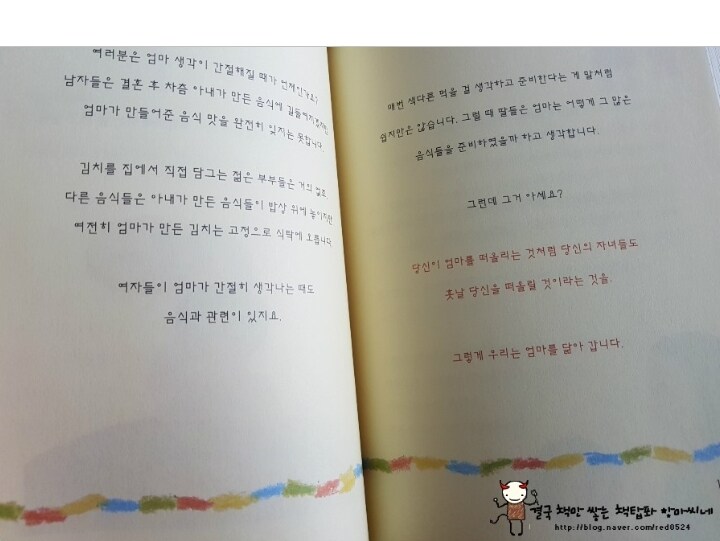 여러분은 엄마 생각이 간절해질 때가 언제인가요?
남자들은 결혼 후 차츰 아내가 만든 음식에 길들여지겠지만
엄마가 만들어준 음식 맛을 완전히 잊지는 못합니다.
김치를 집에서 직접 담그는 젊은 부부들은 거의 없죠.
다른 음식들은 아내가 만든 음식들이 밥상 위에 놓이지만
여전히 엄마가 만든 김치는 고정으로 식탁에 오릅니다.
여자들이 엄마가 간절히 생각나는 때도
음식과 관련이 있지요.
매번 색다른 먹을 걸 생각하고 준비한다는 게 말처럼
쉽지만은 않습니다. 그럴 때 딸들은 엄마는 어떻게 그 많은
음식들을 준비하였을까 하고 생각합니다.
그런데 그거 아세요?
당신이 엄마를 떠올리는 것처럼 당신의 자녀들도
훗날 당신을 떠올릴 것이라는 것을.
그렇게 우리는 엄마를 닮아 갑니다.
결국 책만 쌓는 책탑파 항마씨네
http://blog.naver.com/red0524